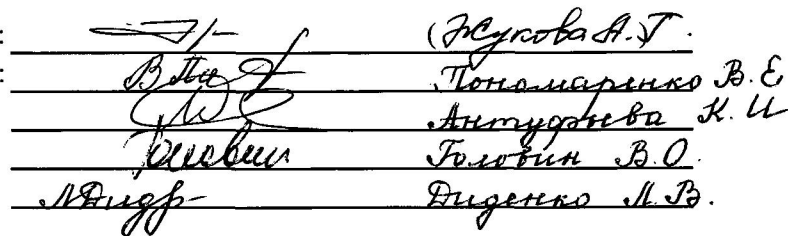 : (Жукова А.Г.
: Пономаренко В.Е
Антуфьева К.И
Головин Головин В.О.
Диденко Л.В.